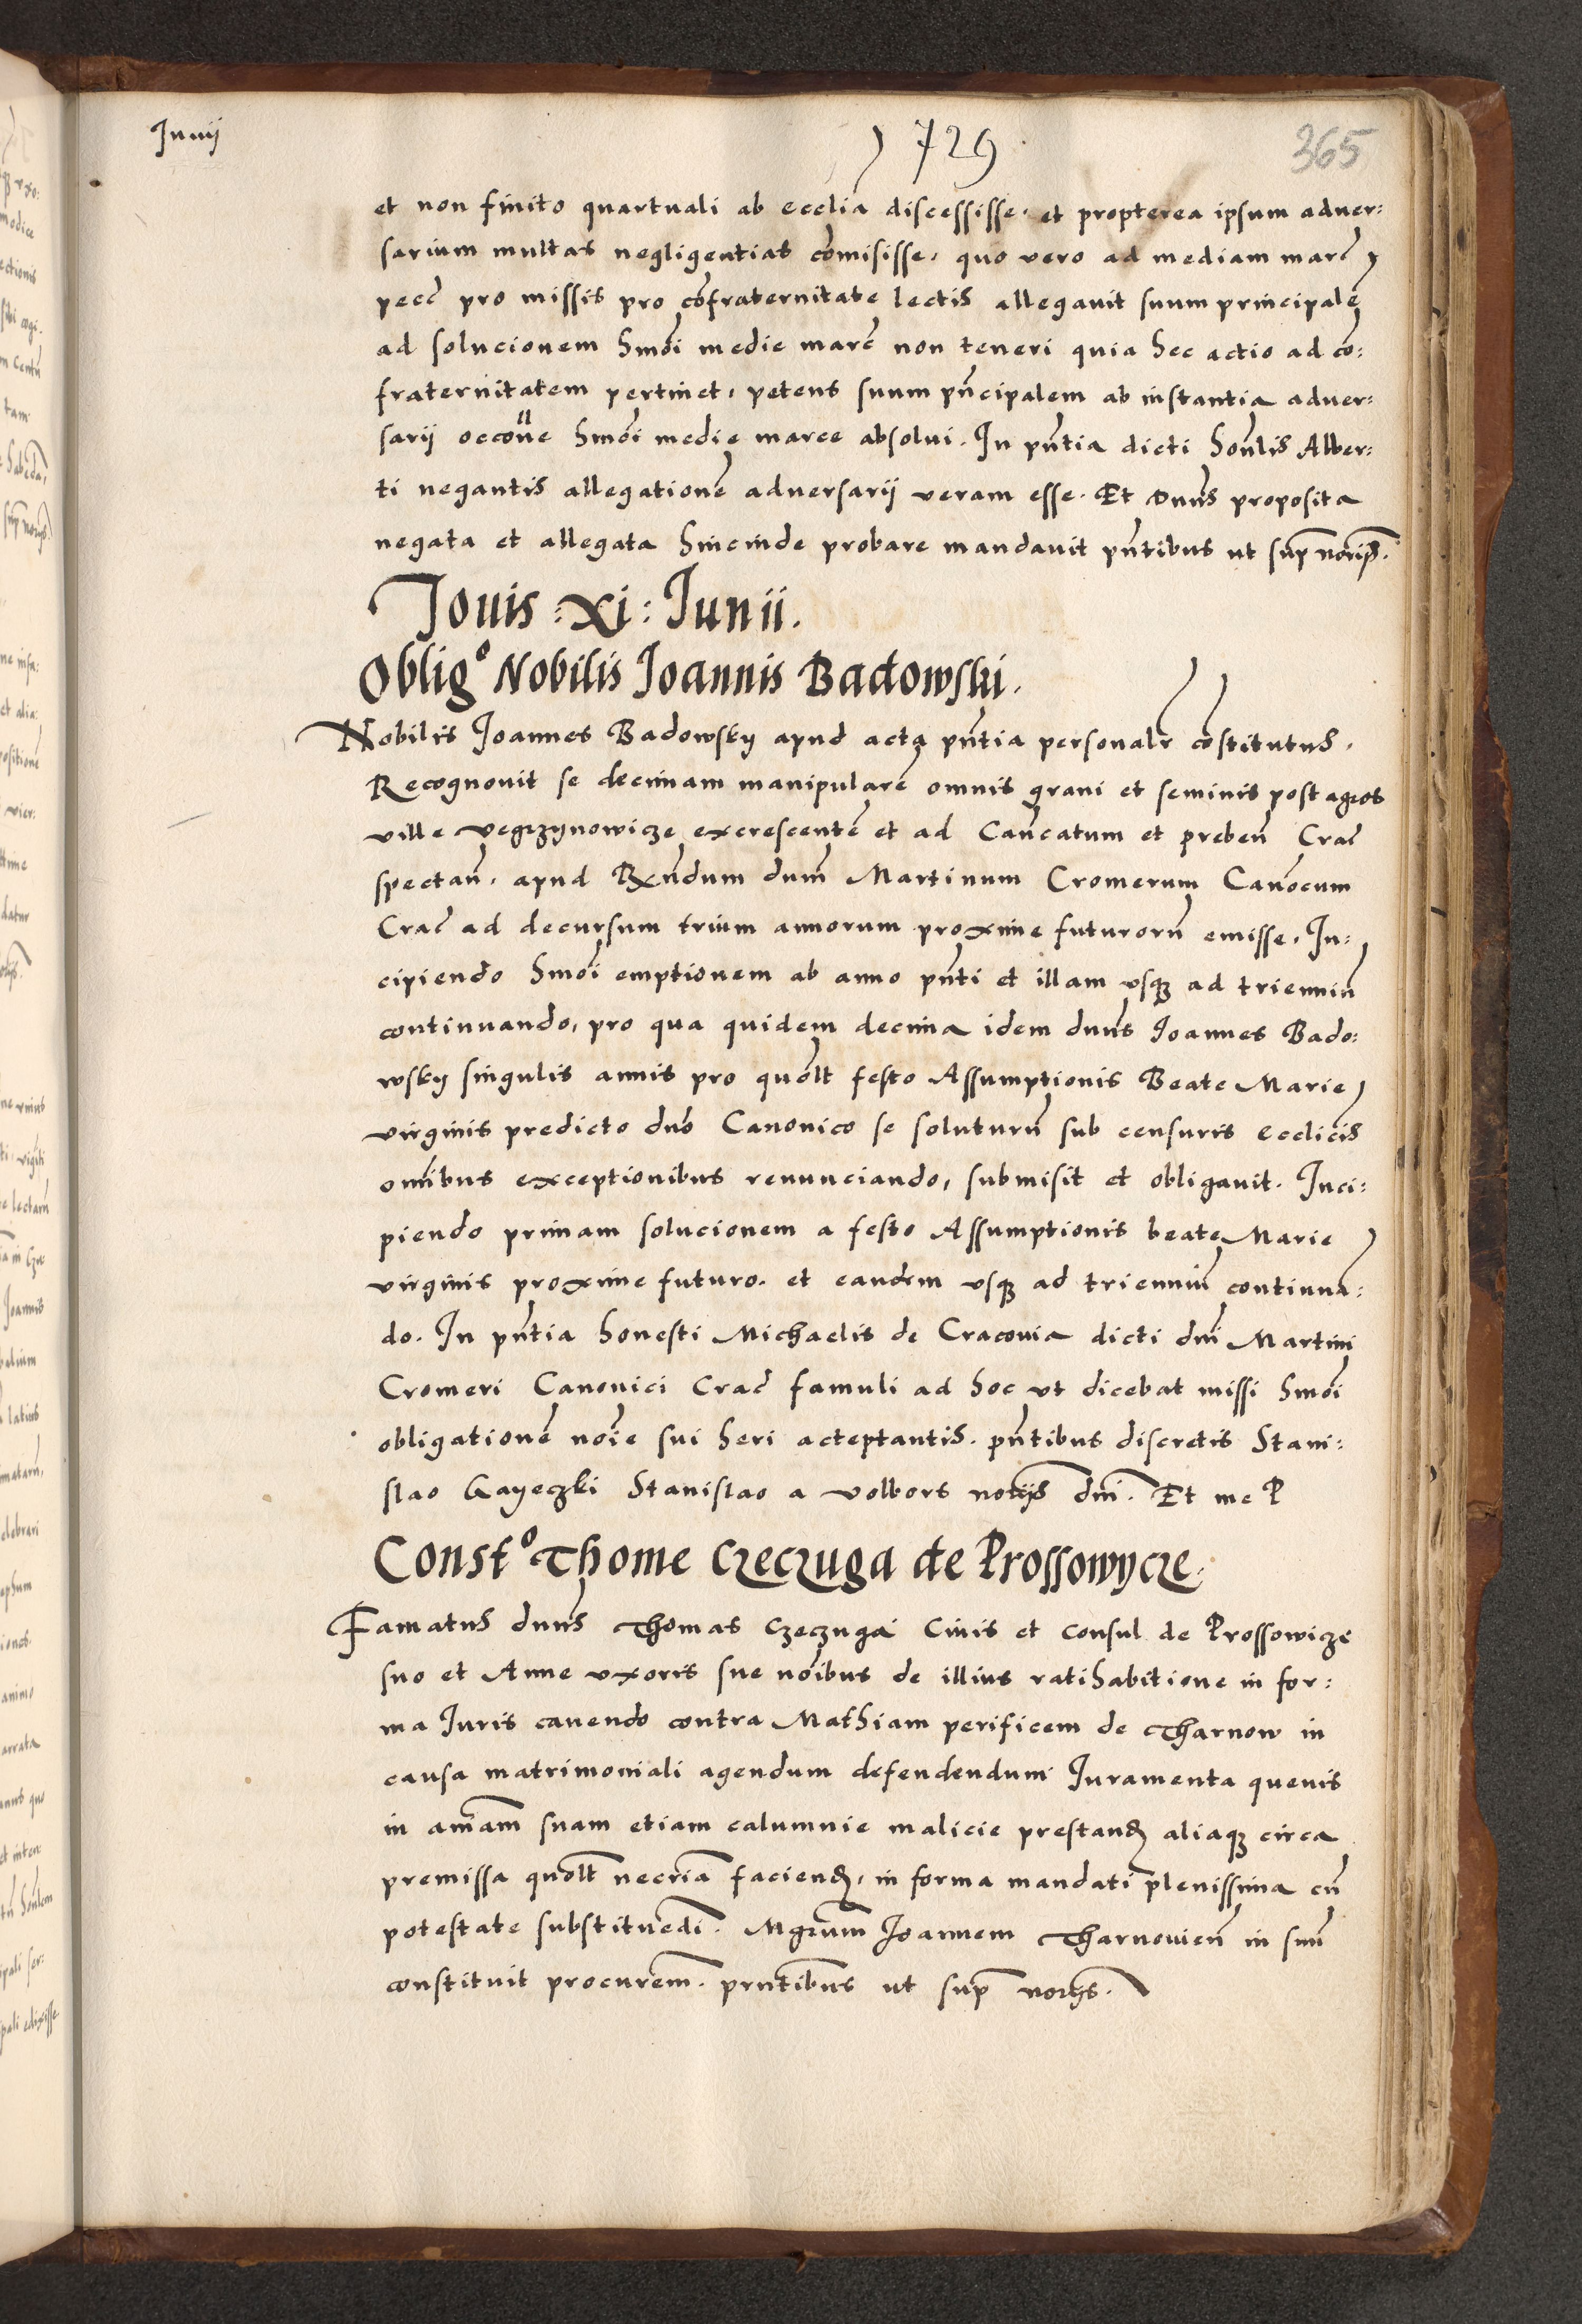 Junij
729
365
et non finito quartuali ab ecclīa discessisse. et propterea ipsum aduer:
sarium multas negligentias cōmisisse, quo vero ad mediam marc̄
pecc̄ pro missis pro cōfraternitate lectis allegauit suum principalē
ad solucionem hmōi medie marc̄ non teneri quia hec actio ad cō:
fraternitatem pertinet, petens suum pn̄cipalem ab instantia aduer:
sarij hmōi medie marce absolui. In pn̄tia dicti hon̄lis Alber:
ti negantis allegationē aduersarij veram esse. Et Dnn̄s proposita
negata et allegata hincinde probare mandauit pn̄tibus ut sup̄ nori͞js.
Jouis :xi: Junii.
Oblig° Nobilis Joannis Badowski.
Nobilis Joannes Badowsky apud acta pn̄tia personalr̄ cōstitutus,
Recognouit se decimam manipularē omnis grani et seminis post agros
ville vegrzynowicze excrescentē et ad Can̄catum et preben̄ Crac̄
spectan̄, apud Rx̄ndum dun̄m Martinum Cromerum Canōcum
Crac̄ ad decursum trium annorum proxime futurorū emisse, In:
cipiendo hmōi emptionem ab anno pn̄ti et illam vsqꝫ ad trienniū
continuando, pro qua quidem decima idem dnn̄s Joannes Bado:
wsky singulis annis pro quōlt festo Assumptionis Beate Marie
virginis predicto dnō Canonico se soluturū sub censuris ecclīcis
om̄ibus exceptionibus renunciando, submisit et obligauit. Inci:
piendo primam solucionem a festo Assumptionis beate Marie
virginis proxime futuro. et eandem vsqꝫ ad trienniū continuā:
do. In pn̄tia honesti Michaelis de Cracouia dicti dnī Martini
Cromeri Canonici Crac̄ famuli ad hoc vt dicebat missi hmōi
obligationē noīe sui heri acteptantis. pn̄tibus discretis Stani:
slao Gayeczki Stanislao a volbors nori͞js dnī. Et me P
Const° Thome Czeczuga de Prossowycze.
Famatus dnn̄s Thomas Czeczuga Ciuis et Consul de Prossowicze
suo et Anne vxoris sue noībus de illius ratihabitione in for:
ma Iuris cauendo contra Mathiam perificem de Tharnow in
causa matrimoniali agendum defendendum Iuramenta queuis
in am̄am suam etiam calumnie malicie prestanđ aliaqꝫ circa
premissa quōlt necrīa facienđ, in forma mandati plenissima cū
potestate substituēdi. Mgrūm Joannem Tharnouien̄ in suū
constituit procurem̄. prn̄tibus ut sup̄ nori͞js.